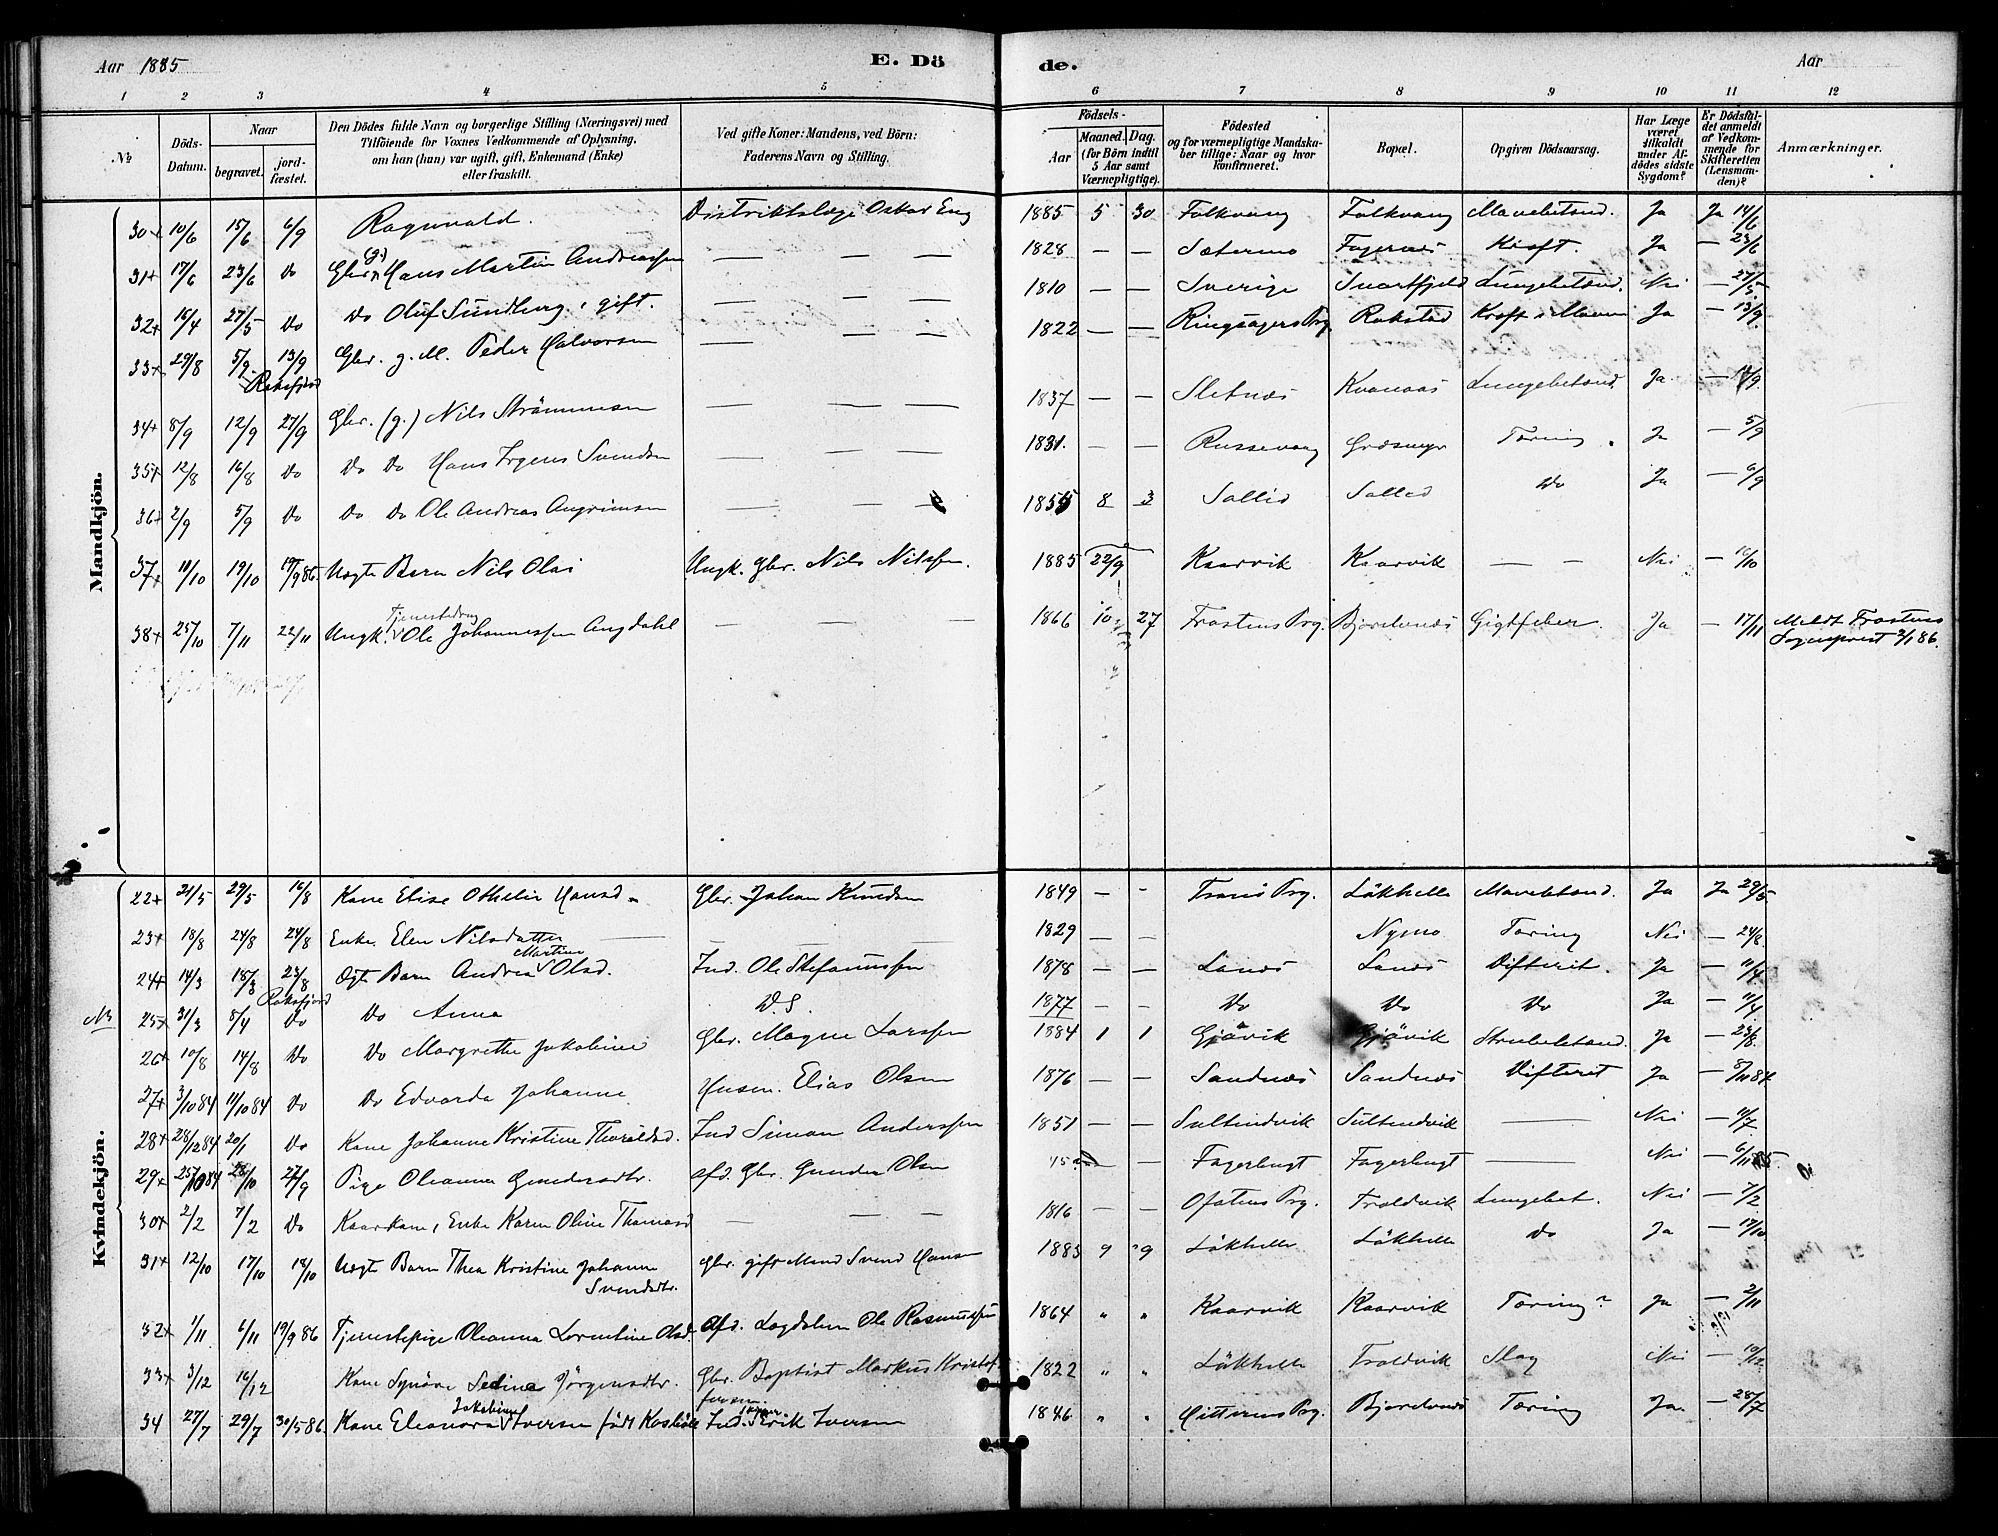 Aar 1885
E. Döde.
Aar
1 2 3 4 5 6 7 8 9 10 11 12
No
Döds-Datum.
Naar
begravet.
jord-fæstet.
Den Dödes fulde Navn og borgerlige Stilling (Næringsvei) med
Tilföiende for Voxnes Vedkommende af Oplysning,
om han (hun) var ugift, gift, Enkemand (Enke)
eller fraskilt.
Ved gifte Koner: Mandens, ved Börn:
Faderens Navn og Stilling.
Födsels-
Aar
Maaned. Dag.
(for Börn indtil
5 Aar samt
Værnepligtige).
Födested
og for værnepligtige Mandska-
ber tillige: Naar og hvor
konfirmeret.
Bopæl.
Opgiven Dödsaarsag.
Har Læge
været
tilkaldt
under Af-
dödes sidste
Sygdom?
Er Dödsfal-
det anmeldt
af Vedkom-
mende for
Skifteretten
(Lensman-
den)?
Anmærkninger.
Mandkjön.
30+ 10/6 15/6 6/9 Ragnvald. Distriktslæge Oskar Eng 1885 5 30 Folkvang Folkvang Mavebetænd. Ja Ja 14/6
31+ 17/6 23/6 Do Gbr. (g.) Hans Martin Andreassen — — — 1828 — — Sætermo Fagernes Kræft. Ja — 23/6
32+ 16/4 27/5 Do Do Oluf Sundberg, gift. — — — 1810 — — Sverige Svartfjeld Lungebetænd. Nei — 27/5
33+ 29/8 5/9 13/9 Gbr. g. M. Peder Halvorsen — — — 1822 — — Ringsagers Prg. Rokstad Kræft i Maven Ja — 13/9
Roksfjord
34+ 8/9 12/9 27/9 Gbr. (g.) Nils Strömmesen — — — 1837 — — Sletnæs Kvanaas Lungebetænd. Ja — 17/9
35+ 12/8 16/8 Do Do Do Hans Irgens Svendsen — — — 1831. — — Russevaag Græsmyr Tæring. Ja — 5/9
36+ 2/9 5/9 Do Do Do Ole Andreas Angrimsen — — — 1855 8 3 Sollid Sollid Do Ja — 6/9
37+ 10/10 19/10 19/9 86. Uægte Barn Nils Olai Ungk. Gbr. Nils Nilssen. 1885 22/9 Kaarvik Kaarvik — — Nei — 16/10
38+ 25/10 7/11 22/11 Ungk. Tjenestedreng Ole Johannessen Angdahl — — — 1866 10 27 Frostens Prg. Bjorelvnes Gigtfeber. Ja — 17/11 Meldt Frostens
Sogneprest 2/1 86.
Kvindekjön.
22+ 21/5 29/5 16/8 Kone Elise Othelie Hansd. Gbr. Johan Knudsen 1849 — - Tranö Prg. Lökhelle Mavebetænd. Ja Ja 29/5
23+ 18/8 24/8 24/8 Enke. Elen Nilsdatter — — 1829 — — Nymo Tæring Nei — 24/8
24+ 14/3 18/3 23/8 Ægte Barn Andrea Martine Olsd. Ind. Ole Stefanussen 1878 — — Lanes Lanes Difterit. Ja — 11/4
Roksfjord
NB 25+ 31/3 8/4 Do Do Anna D. S. 1877 — — Do Do Do Ja — 11/4
26+ 10/8 14/8 Do Do Margrethe Jakobine Gbr. Magne Larssen 1884 1 1 Gjövik Gjövik Strubebetænd. Ja — 23/8
27+ 3/10 84 11/10 84 Do Do Edvarda Johanne Husm. Elias Olsen 1876 — — Sandnæs Sandnæs Difterit Ja — 8/11 84
28+ 28/12 84 20/1 Do Kone Johanne Kristine Thoraldsd. Ind Simon Anderssen 1851 — — Sultindvik Sultindvik — Nei — 11/7
29+ 25/10 84 28/10 27/9 Pige Oleanna Gundersdtr. afd. Gbr. Gunder Olsen — Fagerbugt Fagerbugt — Nei — 6/11 85.
30+ 2/2 7/2 Do Kaarkone, Enke Karen Oline Thomasd — — — 1816 — — Ofotens Prg. Troldvik Lungebet. Nei — 7/2
31+ 12/10 17/10 18/10 Uægte Barn Thea Kristine Johanne Gbr. gift Mand Svend Hansen 1883 9 9 Lökhelle Lökhelle Do Ja — 17/10
Svendsdtr.
32+ 1/11 6/11 19/9 86 Tjenestepige Oleanna Lorentine Olsd. Afd. Lægdslem Ole Rasmussen 1864 " " Kaarvik Kaarvik Tæring? Ja — 2/11
33+ 3/12 16/12 Kone Synöve Sedine Jörgensdtr. Gbr. Baptist Markus Kristof- 1822 " " Lökhelle Troldvik Slag Nei — 10/12
fersen.
34 27/7 29/7 30/5 86. Kone Eleonora Jakobine Iversen född Ind. Erik Iversen 1846 " " Hitterens Prg. Bjorelvnes Tæring Ja. — 28/7